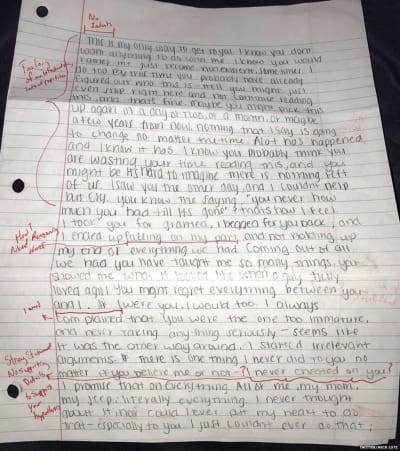 No
Indents
This is my only way to get to you. I know you don't
want anything to do with me. I know you would
rather me just become nonexistent. Sometimes I
do too. By this time you probably have already
figured out who this is. Hell you might just
even stop right here and not continue reading
this, and that's fine. Maybe you might pick this
up again in a day or two, or a month, or maybe
a few years from now. nothing that I say is going
to change no matter the time. Alot has happened,
and I know it has. I know you probably think you
are wasting your time reading this, and you
might be. It's hard to imagine there is nothing left
of "us". I saw you the other day, and I couldn't help
but cry. you know the saying, "you never how
much you had till its gone" thats how I feel.
I took you for granted, I begged for you back, and
I ended up falling on my part, and not holding up
my end of everything we had. Coming out of all
we had you have taught me so many things. you
showed me what it looked like when a guy fully
loved a girl. You might regret everything between you
and I. If I were you, I would too. I always
complained that you were the one too immature,
and never taking anything seriously - seems like
it was the other way around. I started irrelevant
arguments. If there is one thing I never did to you no
matter if you believe me or not -? I never cheated on you?
I promise that on everything. All of me, my mom,
my Jeep: literally everything. I never thought
about it nor could I ever put my heart to do
that - especially to you. I just couldn't ever do that;
Too long
Strong Statement
No supporting
Details
to support
your hypothesis